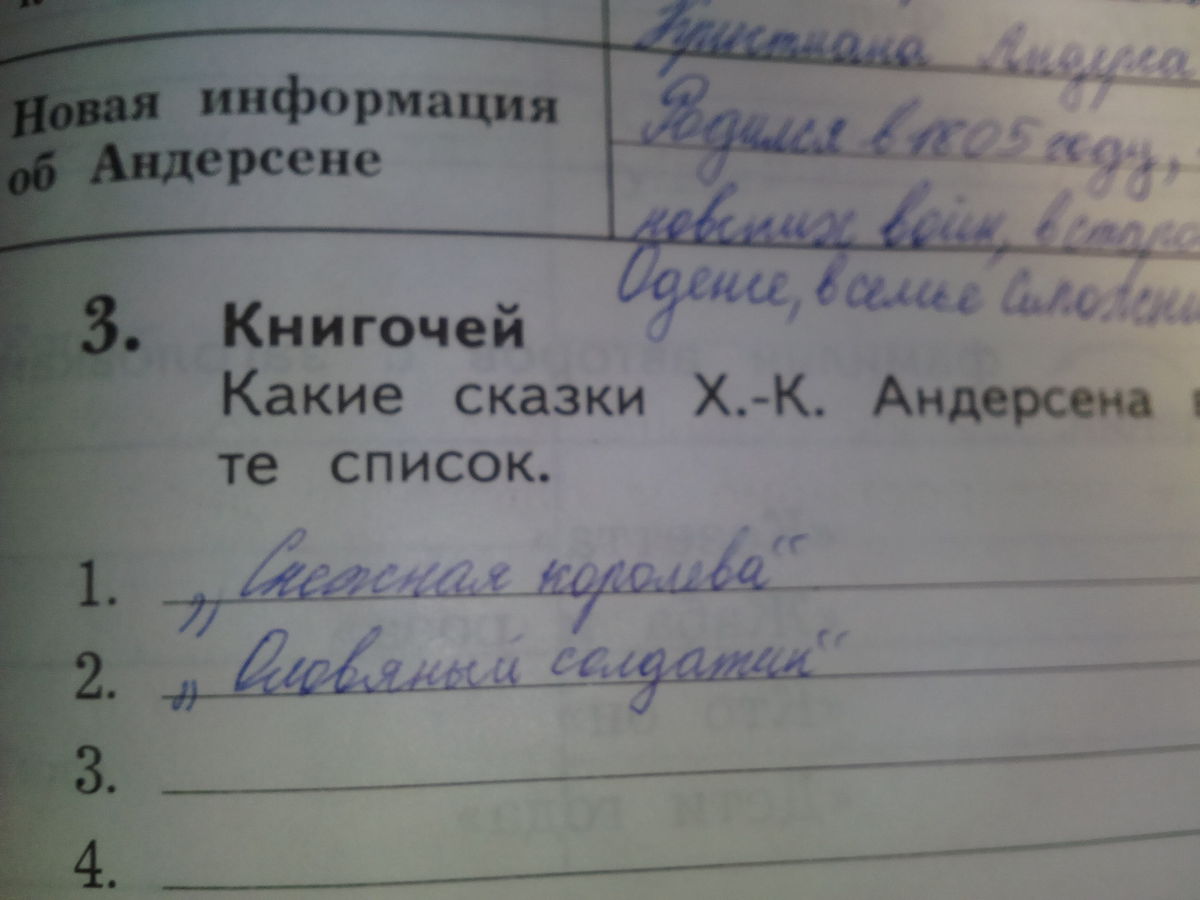 Кристиана Андерса
Новая информация
об Андерсене
Родился в 1805 году,
новских войн, в старо
Оденсе, в семье сапожни
3. Книгочей
Какие сказки Х.-К. Андерсена в
те список.
1. „Снежная королева“
2. „Оловяный солдатик“
3.
4.